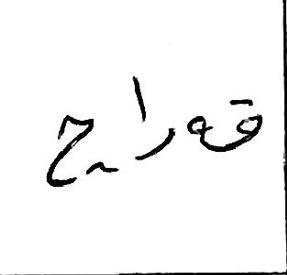 قەراج